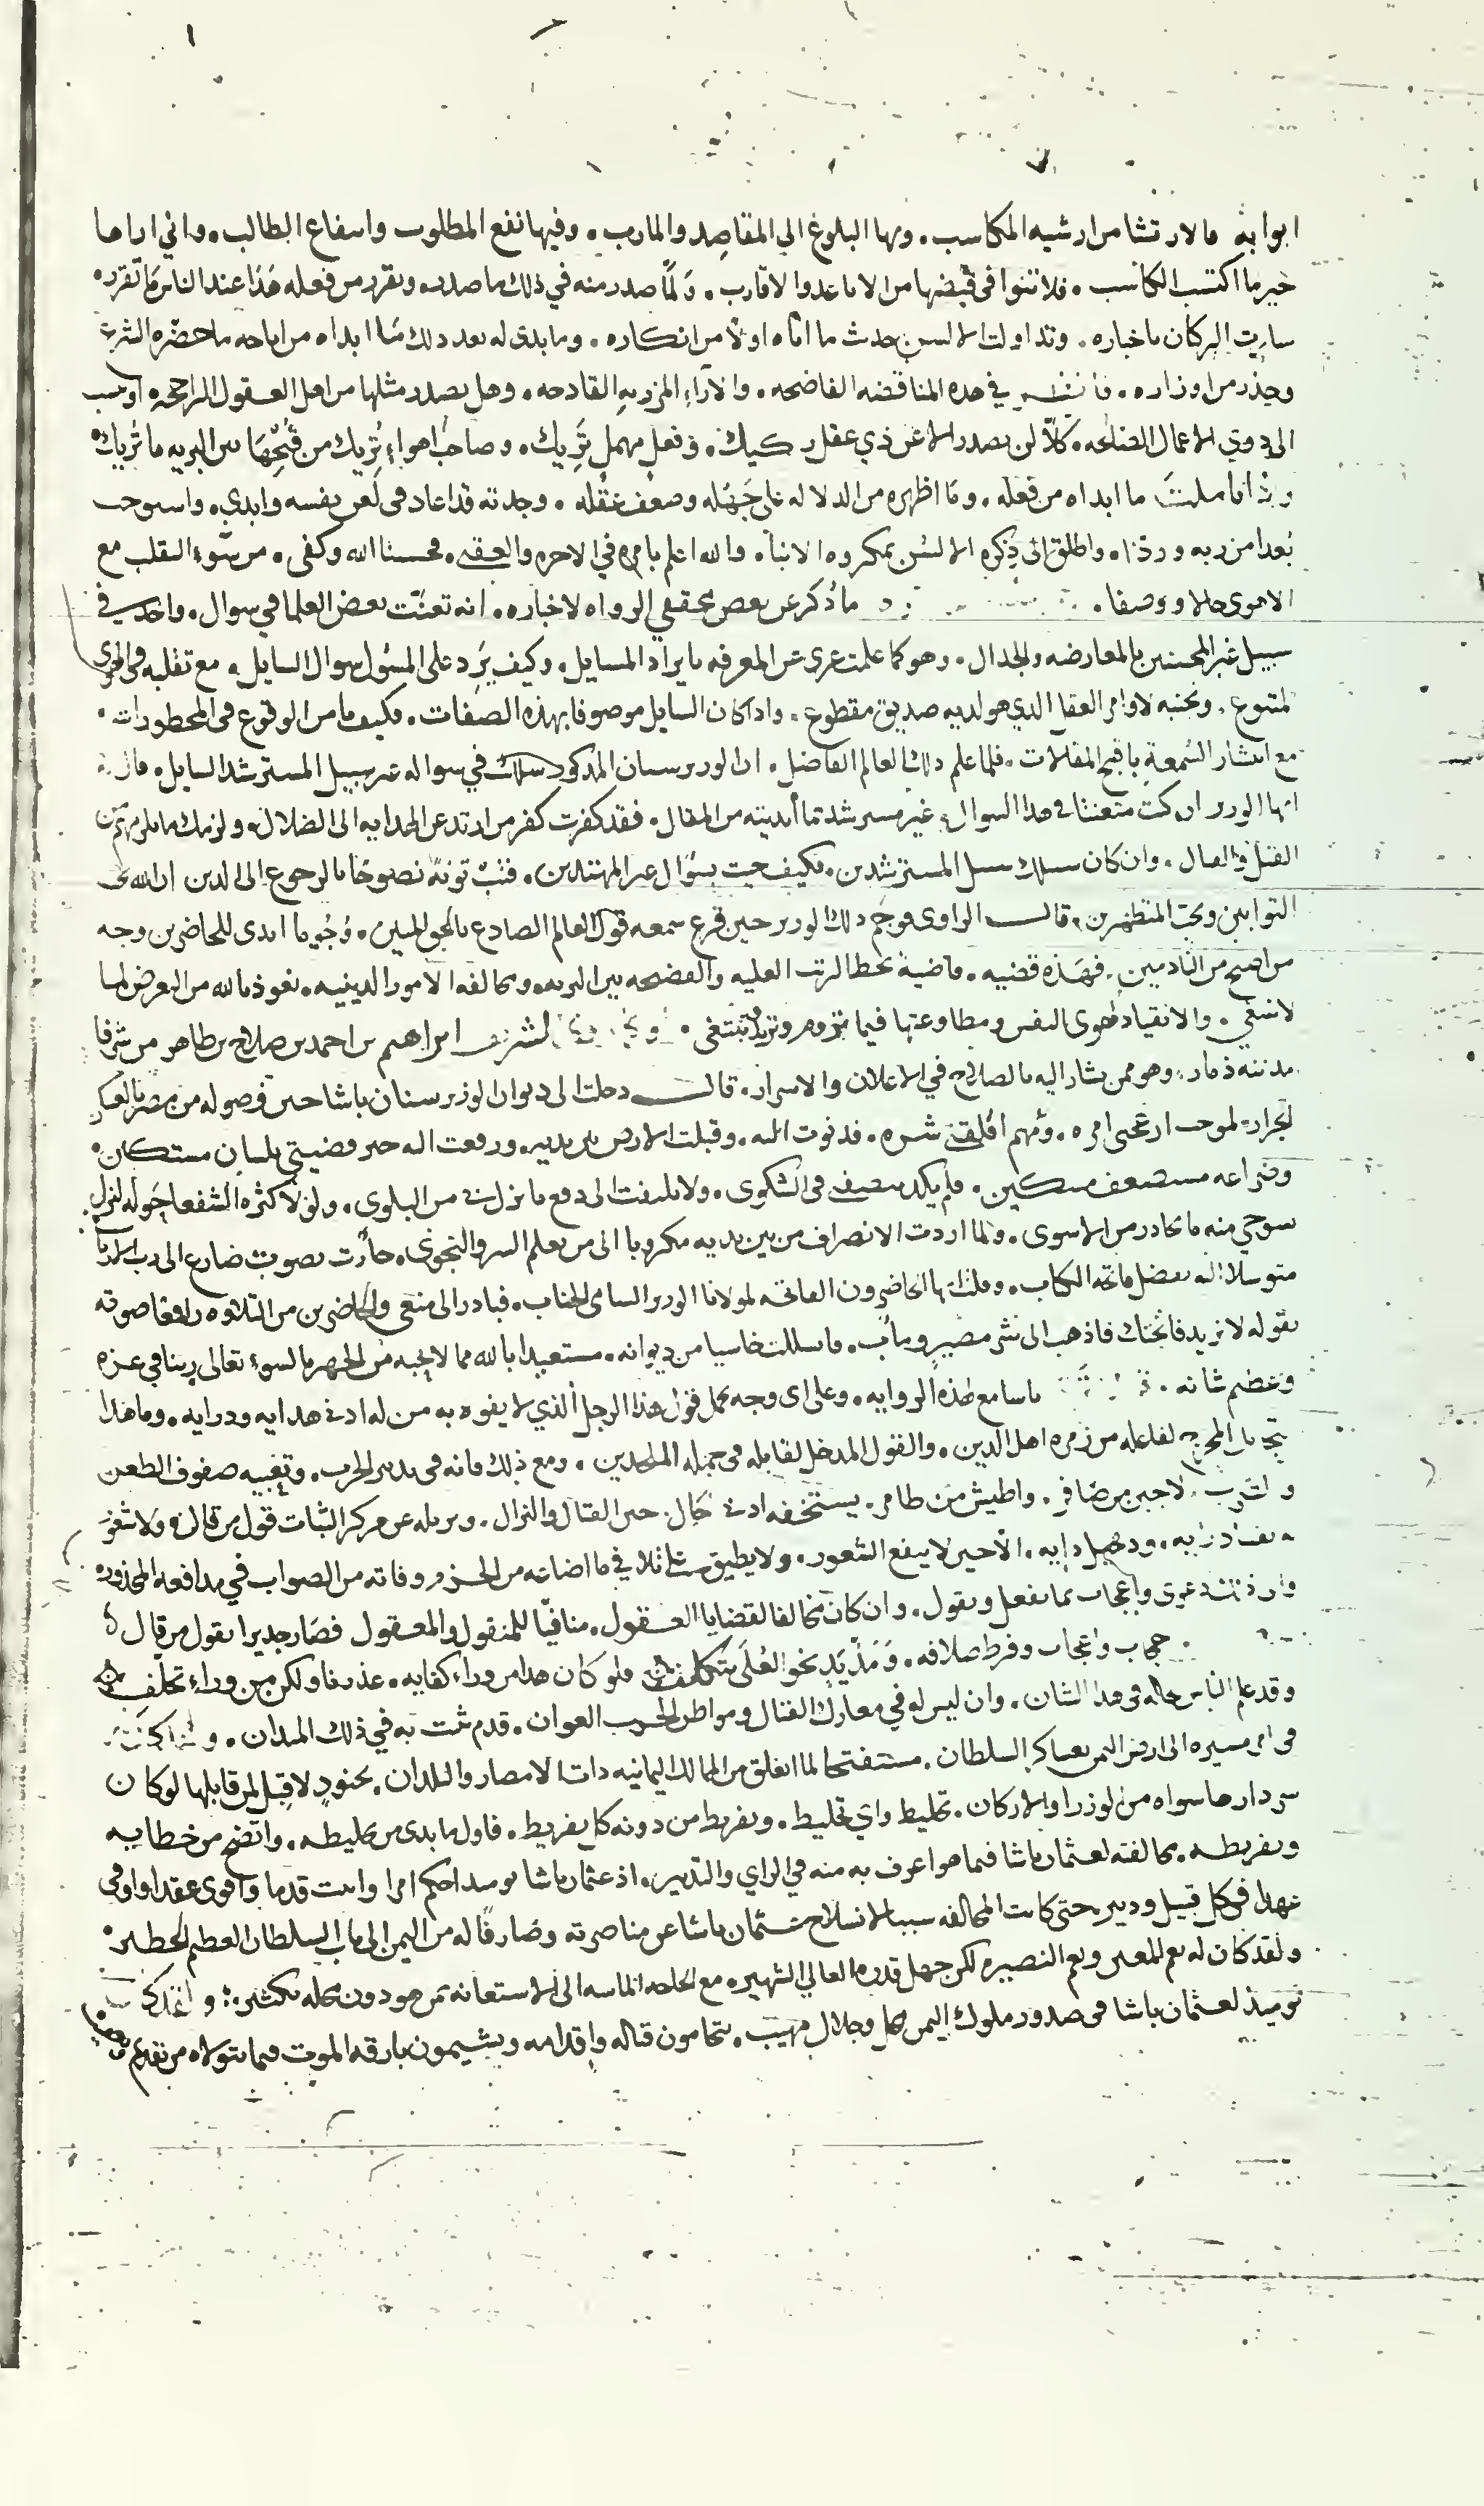 ابوابه فالارتشا من ارشيه المكاسب. وبها البلوغ الى المقاصد والمارب. وفيها نفع المطلوب وانتفاع الطالب. واني اراها
خير ما اكتسب الكاسب. فلا تنوا في قبضها من الاباعد والاقارب. ولما صدر منه في ذلك ما صدر. وتقرر من فعله هذا عند الناس ما تقرر
سارت الركبان باخباره. وتداولت الالسن حدث ما اتاه اولا من انكاره. وما بدى له بعد ذلك مما ابداه من اباحه ما حضره الشرع
وحذر من اوزاره. في هذه المناقضه الفاضحه. والآراء المزريه القادحه. وهل يصدر مثلها من اهل العقول الراجحه او
الى ذوي الاعمال الصالحه. كلا لن يصدر الا عن ذي عقل ركيك. وفعل مهمل تريك. وصاحب اهواء تريك من قبحها بين البريه ما تريك
ما ابداه من فعله. وما اظهره من الدلاله على جهله وضعف عقله. وجدته قد اعاد في لعن نفسه وابدى. واستوجب
بعدا من ربه وردا. واطلق الى ذكره الالسن بمكروه الانبآ. والله اعلم بامره في الاخره والعقبى. فحسبنا الله وكفى. من سوء التقلب مع
الاهوى حالا ووصفا. ما ذكر عن بعض محققي الرواه لاخباره. انه تعنت بعض العلما في سوال. واخذ في
سبيل غير المحسنين بالمعارضه والجدال. وهو كما علمت عري عن المعرفه بايراد المسايل. وكيف يرد على المسؤل سوال السايل. مع تقلبه في الهوى
المتبوع. وتجنبه لاوامر العقل الذي هو لديه صديق مقطوع. واذا كان السايل موصوفا بهذه الصفات. فكيف يامن الوقوع في المحظورات.
مع انتشار السمعة باقبح المقالات. فلما علم ذلك العالم الفاضل. ان الوزير سنان المذكور سلك في سواله غير سبيل المسترشد السايل. قال
ايها الوزير ان كنت متعنتا في هذا السوال. غير مسترشد بما أبديته من المقال. فقد كفرت كفر من ارتد عن الهدايه الى الضلال. ولزمك ما يلزمهم من
القتل والقتال. وان كان سبيلك سبيل المسترشدين. فكيف جيت بسؤال غير المهتدين. فتب توبة نصوحا بالرجوع الى الدين ان الله يحب
التوابين ويحب المتطهرين. قال الراوى فوجم ذلك الوزير حين قرع سمعه قول العالم الصادع بالحق المبين. وجوما ابدى للحاضرين وجه
من اصبح من النادمين. فهذه قضيه. قاضية بحط الرتب العليه والفضيحه بين البريه. ومخالفه الامور الدينيه. نعوذ بالله من التعرض لما
لا ينبغي. والانقياد لهوى النفس ومطاوعتها فيما تروم وتريد وتبتغي. الشريف ابراهيم بن احمد بن صلاح بن طاهر من شرفا
مدينه ذمار. وهو ممن يشار اليه بالصلاح في الاعلان والاسرار. قال دخلت الى ديوان الوزير سنان باشا حين وصوله من مصر بالعسكر
الجرار. لموجب ازعجني امره. ومهم اقلقني شره. فدنوت اليه. وقبلت الارض بين يديه. ورفعت اليه خبر قضيتي بلسان مستكان
وضراعه مستضعف مسكين. فلم يكد ينصفني في الشكوى. ولا يلتفت الى دفع ما نزل بي من البلوى. ولولا كثره الشفعا حوله لنزل
بي منه ما يحاذر من الاسوى. ولما اردت الانصراف من بين يديه مكروبا الى من يعلم السر والنجوى. جأرت بصوت ضارع الى رب الارباب
متوسلا اليه بفضل فاتحه الكتاب. وقلت ايها الحاضرون الفاتحه لمولانا الوزير السامى الجناب. فبادر الى منعى والحاضرين من التلاوه رافعا صوته
بقوله لا نريد فاتحتك فاذهب الى شر مصير ومآب. فانسللت خاسيا من ديوانه. مستعيدا بالله مما لا يحبه من الجهر بالسوء تعالى ربنا في عزه
وعظم شانه. يا سامع هذه الروايه. وعلى اى وجه يحمل قول هذا الرجل الذي لا يفوه به من له ادنى هدايه ودرايه. وما هذا
لفاعله من زمره اهل الدين. والقول المدخل لقايله في جمله الملحدين. ومع ذلك فانه في تدبير الحرب. وتعبيه صفوف الطعن
والضرب. لاجبن من صافر. واطيش من طامر. يستخفه ادنى خال حين القتال والنزال. ويزيله عن مركز الثبات قول من قال. ولا شعر
الاحين لا ينفع الشعور. ولا يطيق تلافي ما اضاعه من الحزم وفاته من الصواب في مدافعه المحذور.
دعوى واعجاب بما يفعل ويقول. وان كان مخالفا لقضايا العقول. منافيا للمنقول والمعقول فصار جديرا بقول من قال
حجاب واعجاب وفرط صلافه. ومد يد نحو العلى بتكلف فلو كان هذا من وراء كفايه. عذرنا ولكن من وراء تخلف
وقد علم الناس حاله في هذا الشان. وان ليس له في معارك القتال ومواطن الحرب العوان. قدم ثبت به في ذلك الميدان.
في امر مسيره الى ارض اليمن بعساكر السلطان. مستفتحا لما انغلق من الممالك اليمانيه ذات الامصار والبلدان. بجنود لا قبل لمن قابلها لو كان
سردارها سواه من الوزرا والاركان. تخليط واي تخليط. وتفريط من دونه كل تفريط. فاول ما بدى من تخليطه. واتضح من خطايه
وتفريطه. مخالفته لعثمان باشا فيما هو اعرف به منه في الراي والتدبير. اذ عثمان باشا يوميذ احكم امرا واثبت قدما واقوى عقدا واوفى
عهدا في كل قبيل ودبير. حتى كانت المخالفه سببا لانسلاخ عثمان باشا عن مناصرته وصارفا له من اليمن الى باب السلطان العظيم الخطير.
ولقد كان له نعم المعين ونعم النصير. لكن جهل قدره العالي الشهير. مع الحاجه الماسه الى الاستعانه بمن هو دون محله بكثير.
يوميذ لعثمان باشا في صدور ملوك اليمن محل وجلال مهيب. يتحامون قتاله واقدامه ويشيمون بارقه الموت فيما يتولاه من تقديم